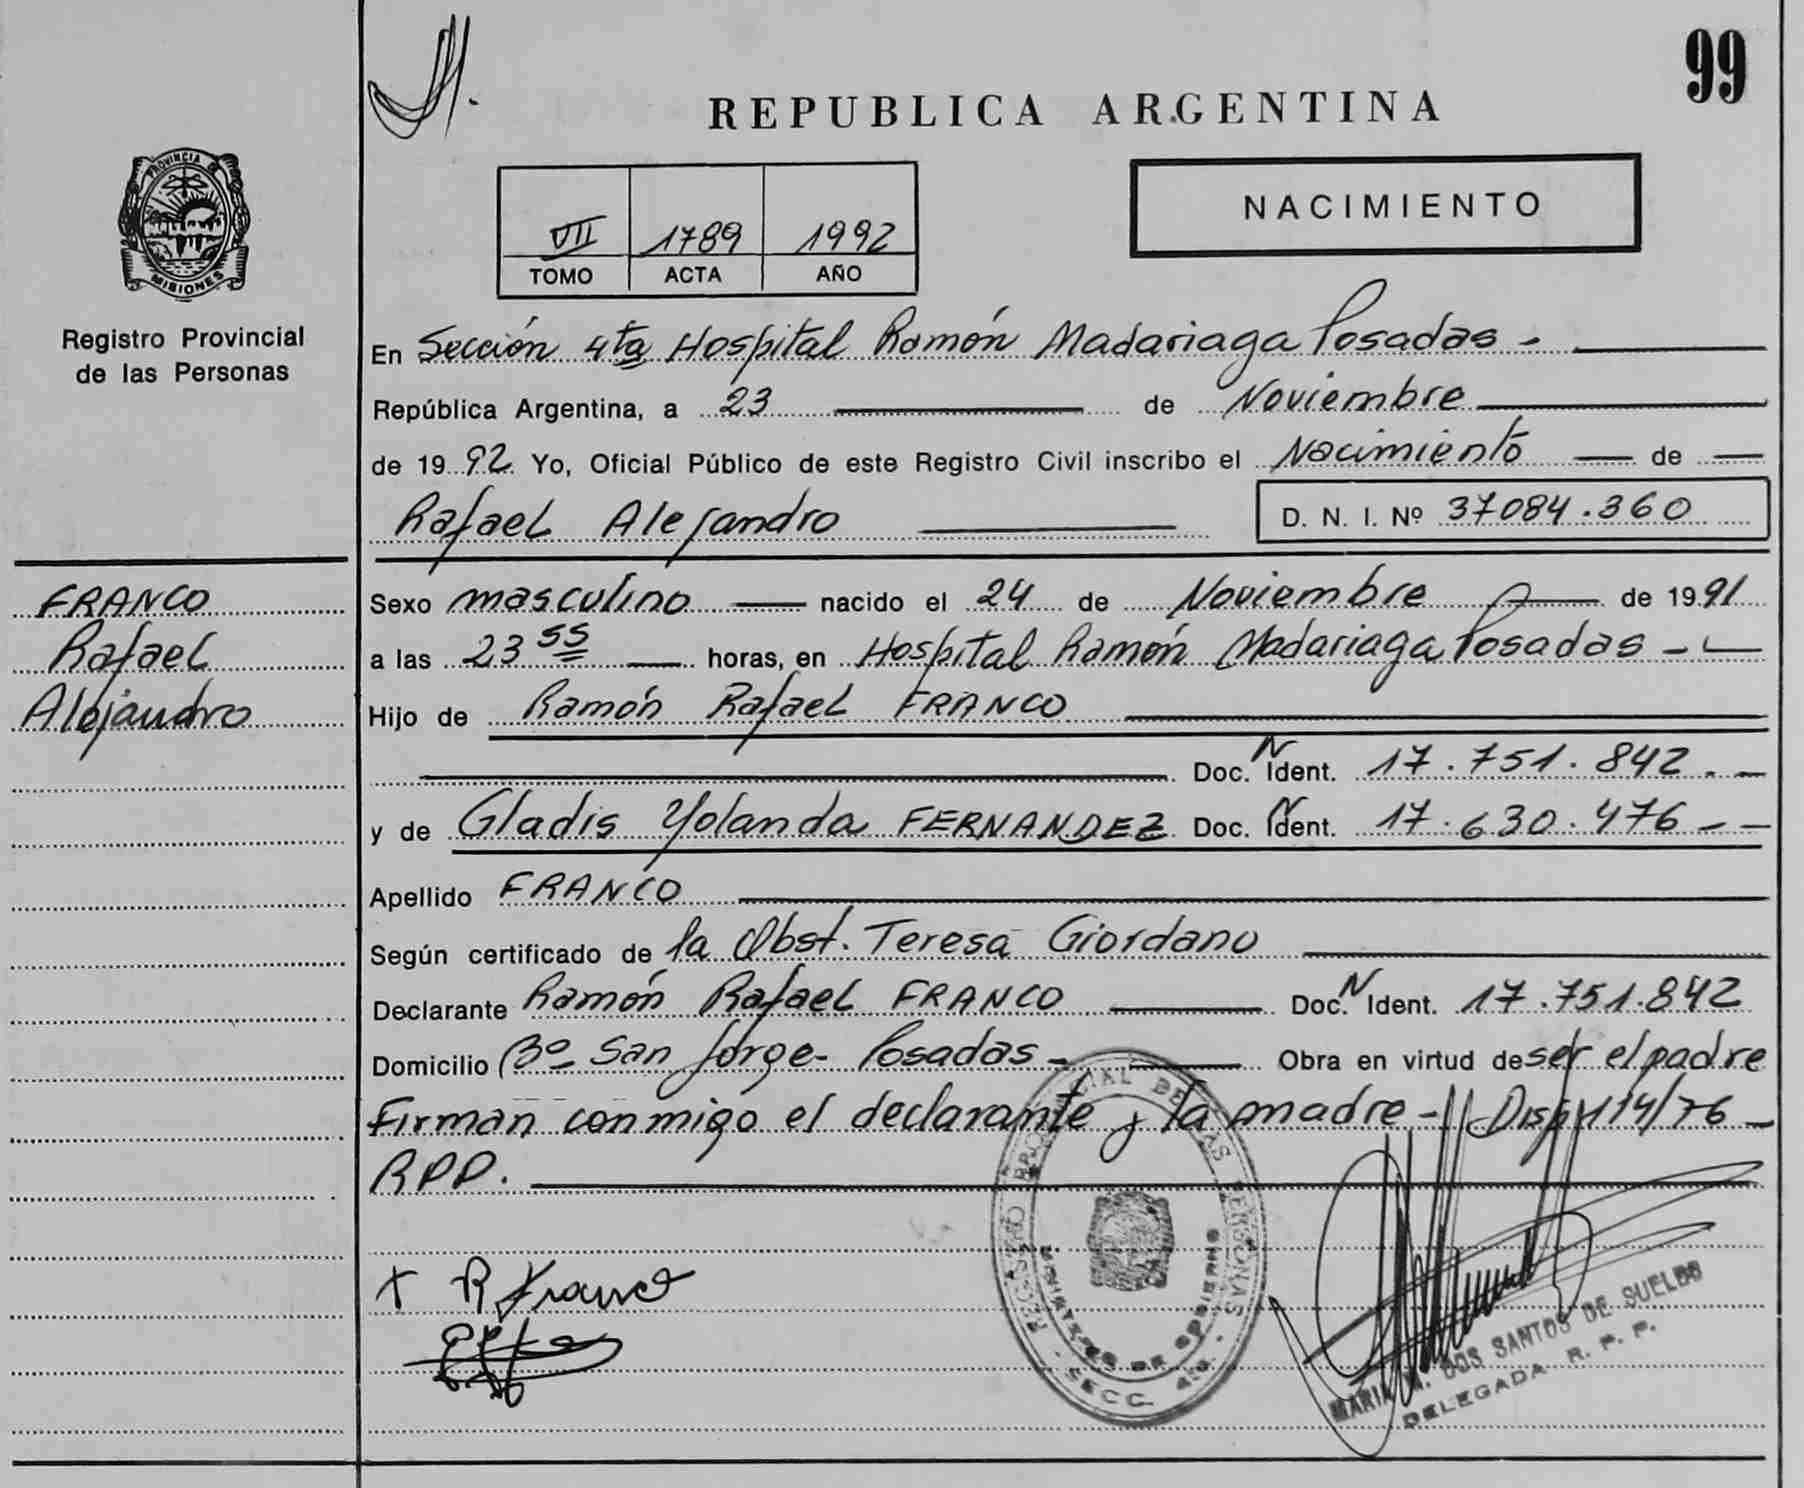 99
REPUBLICA ARGENTINA
PROVINCIA DE
MISIONES
Registro Provincial
de las Personas
VII 1789 1992
TOMO ACTA AÑO
NACIMIENTO
En Sección 4ta Hospital Ramón Madariaga Posadas -
República Argentina, a 23 de Noviembre
de 1992 Yo, Oficial Público de este Registro Civil inscribo el Nacimiento de
Rafael Alejandro D. N. I. Nº 37084.360
FRANCO
Rafael
Alejandro
Sexo masculino nacido el 24 de Noviembre de 1991
a las 23 55 horas, en Hospital Ramón Madariaga Posadas -
Hijo de Ramón Rafael FRANCO
Doc. N Ident. 17.751.842. -
y de Gladis Yolanda FERNANDEZ Doc. N Ident. 17.630.476 - -
Apellido FRANCO
Según certificado de la Obst. Teresa Giordano
Declarante Ramón Rafael FRANCO Doc. N Ident. 17.751.842
Domicilio Bº San Jorge - Posadas - Obra en virtud de ser el padre
Firman conmigo el declarante y la madre - Disp 114/76 -
RPP.
REGISTRO PROVINCIAL DE LAS PERSONAS
MINISTERIO DE GOBIERNO
- SECC. 4ta. -
x R Franco
MARIA M. DOS SANTOS DE SUELDO
DELEGADA R. P. P.